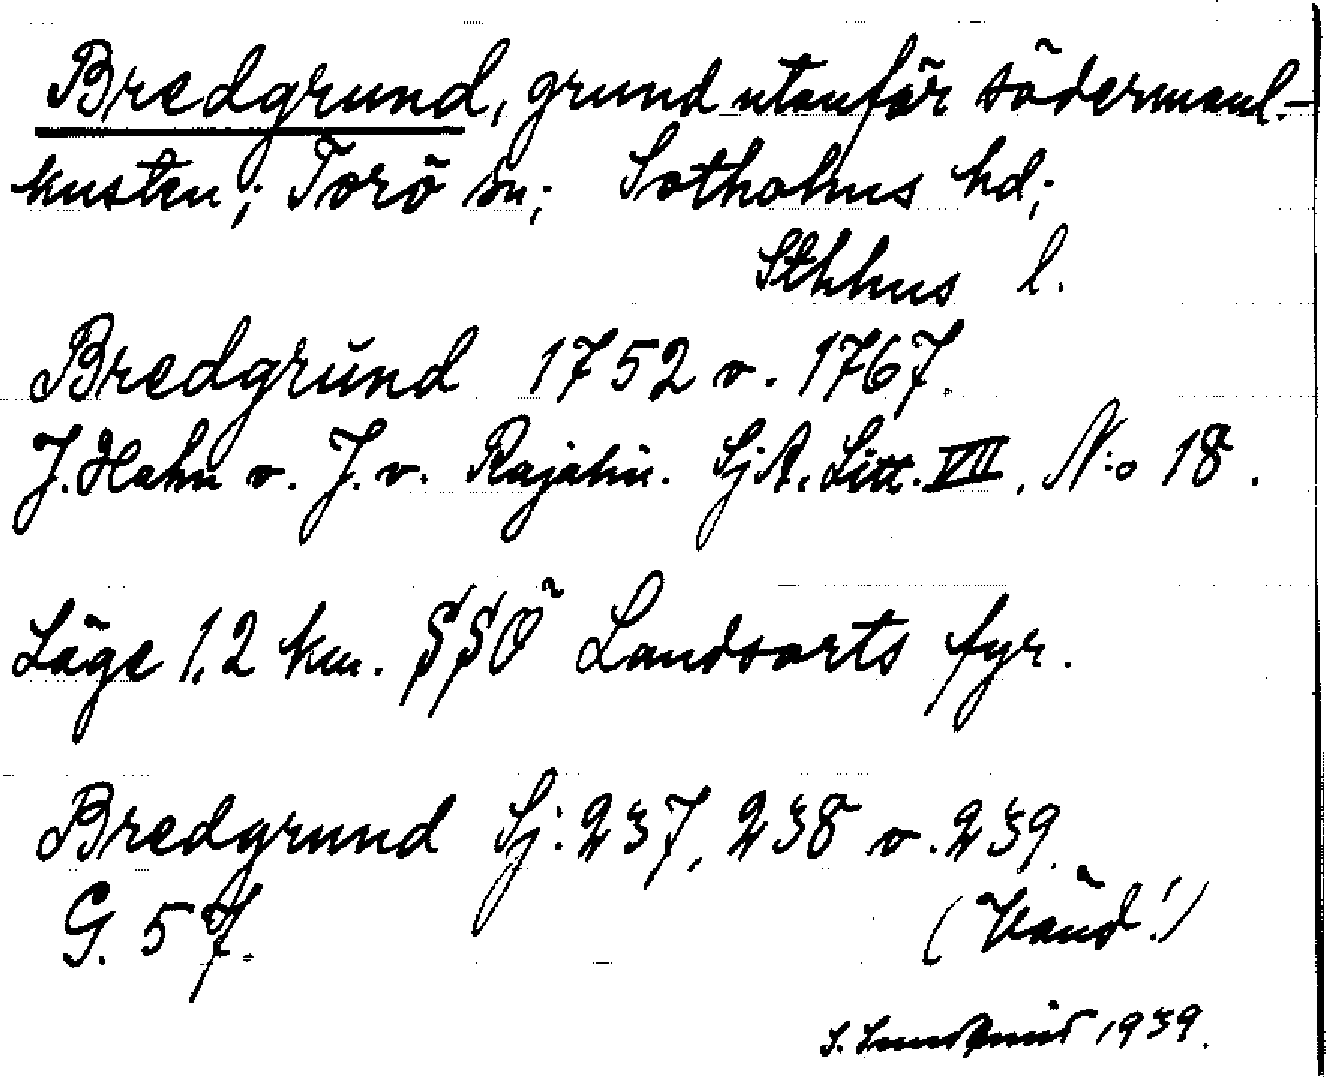 Bredgrund, grund utanför södermanl.-
kusten; Torö sn; Sotholms hd;
Sthlms l.
Bredgrŭnd 1752 o. 1767.
J. Hahn o. J. v. Rajalin. SjA. Litt. VII. N:o 18.
Läge 1,2 km. SSÖ Landsorts fyr.
Bredgrund Sj: 237, 238 o. 239.
G. 57.
(Vänd!)
S. Lundqvist 1939.